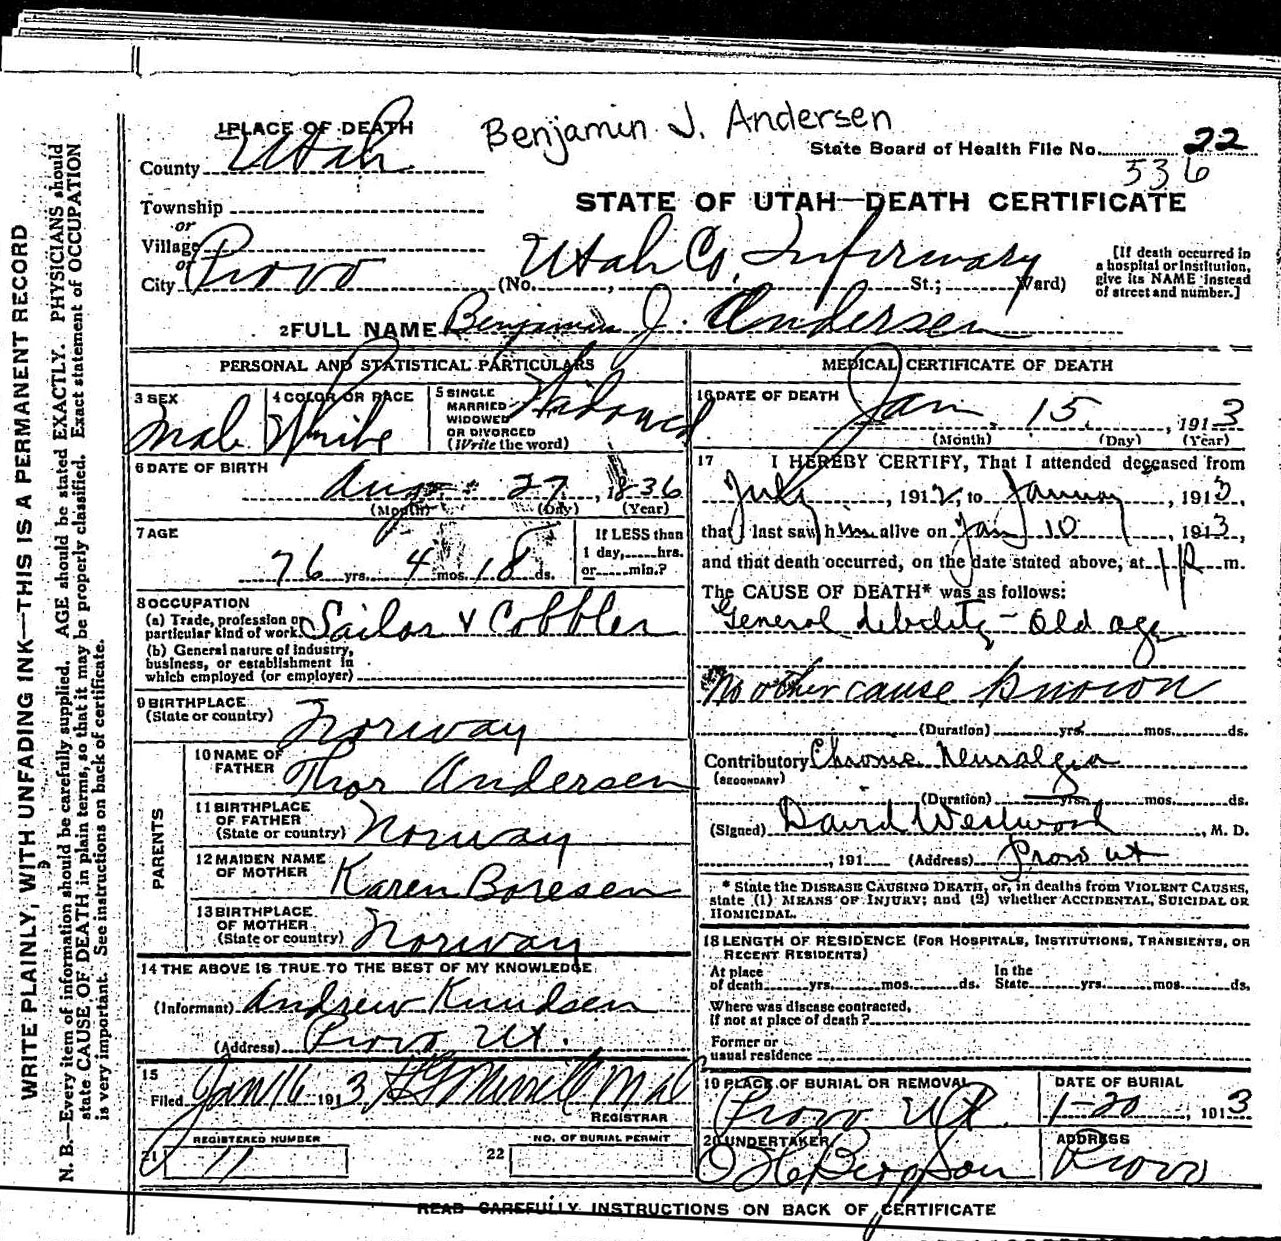 Benjamin J. Andersen
1 PLACE OF DEATH
County Utah
State Board of Health File No. 22
536
Township
or
Village
or
City Provo
STATE OF UTAH—DEATH CERTIFICATE
(No. Utah Co. Infirmary St.; Ward)
[If death occurred in
a hospital or institution,
give its NAME instead
of street and number.]
2 FULL NAME Benjamin J. Andersen
PERSONAL AND STATISTICAL PARTICULARS
3 SEX
Male
4 COLOR OR RACE
White
5 SINGLE
MARRIED
WIDOWED
OR DIVORCED
(Write the word)
Widowed
6 DATE OF BIRTH
Aug 27, 1836
(Month) (Day) (Year)
7 AGE
76 yrs. 4 mos. 18 ds.
If LESS than
1 day, hrs.
or min.?
8 OCCUPATION
(a) Trade, profession or
particular kind of work Sailor & Cobbler
(b) General nature of industry,
business, or establishment in
which employed (or employer)
9 BIRTHPLACE
(State or country) Norway
PARENTS
10 NAME OF
FATHER Thor Andersen
11 BIRTHPLACE
OF FATHER
(State or country) Norway
12 MAIDEN NAME
OF MOTHER Karen Boresen
13 BIRTHPLACE
OF MOTHER
(State or country) Norway
14 THE ABOVE IS TRUE TO THE BEST OF MY KNOWLEDGE
(Informant) Andrew Knudsen
(Address) Provo Ut.
15
Filed Jan 16 1913
REGISTRAR
REGISTERED NUMBER
21 11
NO. OF BURIAL PERMIT
22
MEDICAL CERTIFICATE OF DEATH
16 DATE OF DEATH
Jan. 15, 1913
(Month) (Day) (Year)
17 I HEREBY CERTIFY, That I attended deceased from
July, 1912, to January, 1913,
that I last saw him alive on Jan 10, 1913,
and that death occurred, on the date stated above, at 1 P m.
The CAUSE OF DEATH* was as follows:
General debility - old age
No other cause known
(Duration) yrs. mos. ds.
Contributory Chronic Neuralgia
(SECONDARY)
(Duration) yrs. mos. ds.
(Signed) David Westwood, M. D.
, 191 (Address) Provo Ut
* State the DISEASE CAUSING DEATH, or, in deaths from VIOLENT CAUSES,
state (1) MEANS OF INJURY; and (2) whether ACCIDENTAL, SUICIDAL OR
HOMICIDAL.
18 LENGTH OF RESIDENCE (FOR HOSPITALS, INSTITUTIONS, TRANSIENTS, OR
RECENT RESIDENTS)
At place
of death yrs. mos. ds.
In the
State yrs. mos. ds.
Where was disease contracted,
if not at place of death?
Former or
usual residence
19 PLACE OF BURIAL OR REMOVAL
Provo Ut.
DATE OF BURIAL
1-20, 1913
20 UNDERTAKER
ADDRESS
Provo
READ CAREFULLY INSTRUCTIONS ON BACK OF CERTIFICATE
WRITE PLAINLY, WITH UNFADING INK—THIS IS A PERMANENT RECORD
N. B.—Every item of information should be carefully supplied. AGE should be stated EXACTLY. PHYSICIANS should
state CAUSE OF DEATH in plain terms, so that it may be properly classified. Exact statement of OCCUPATION
is very important. See instructions on back of certificate.